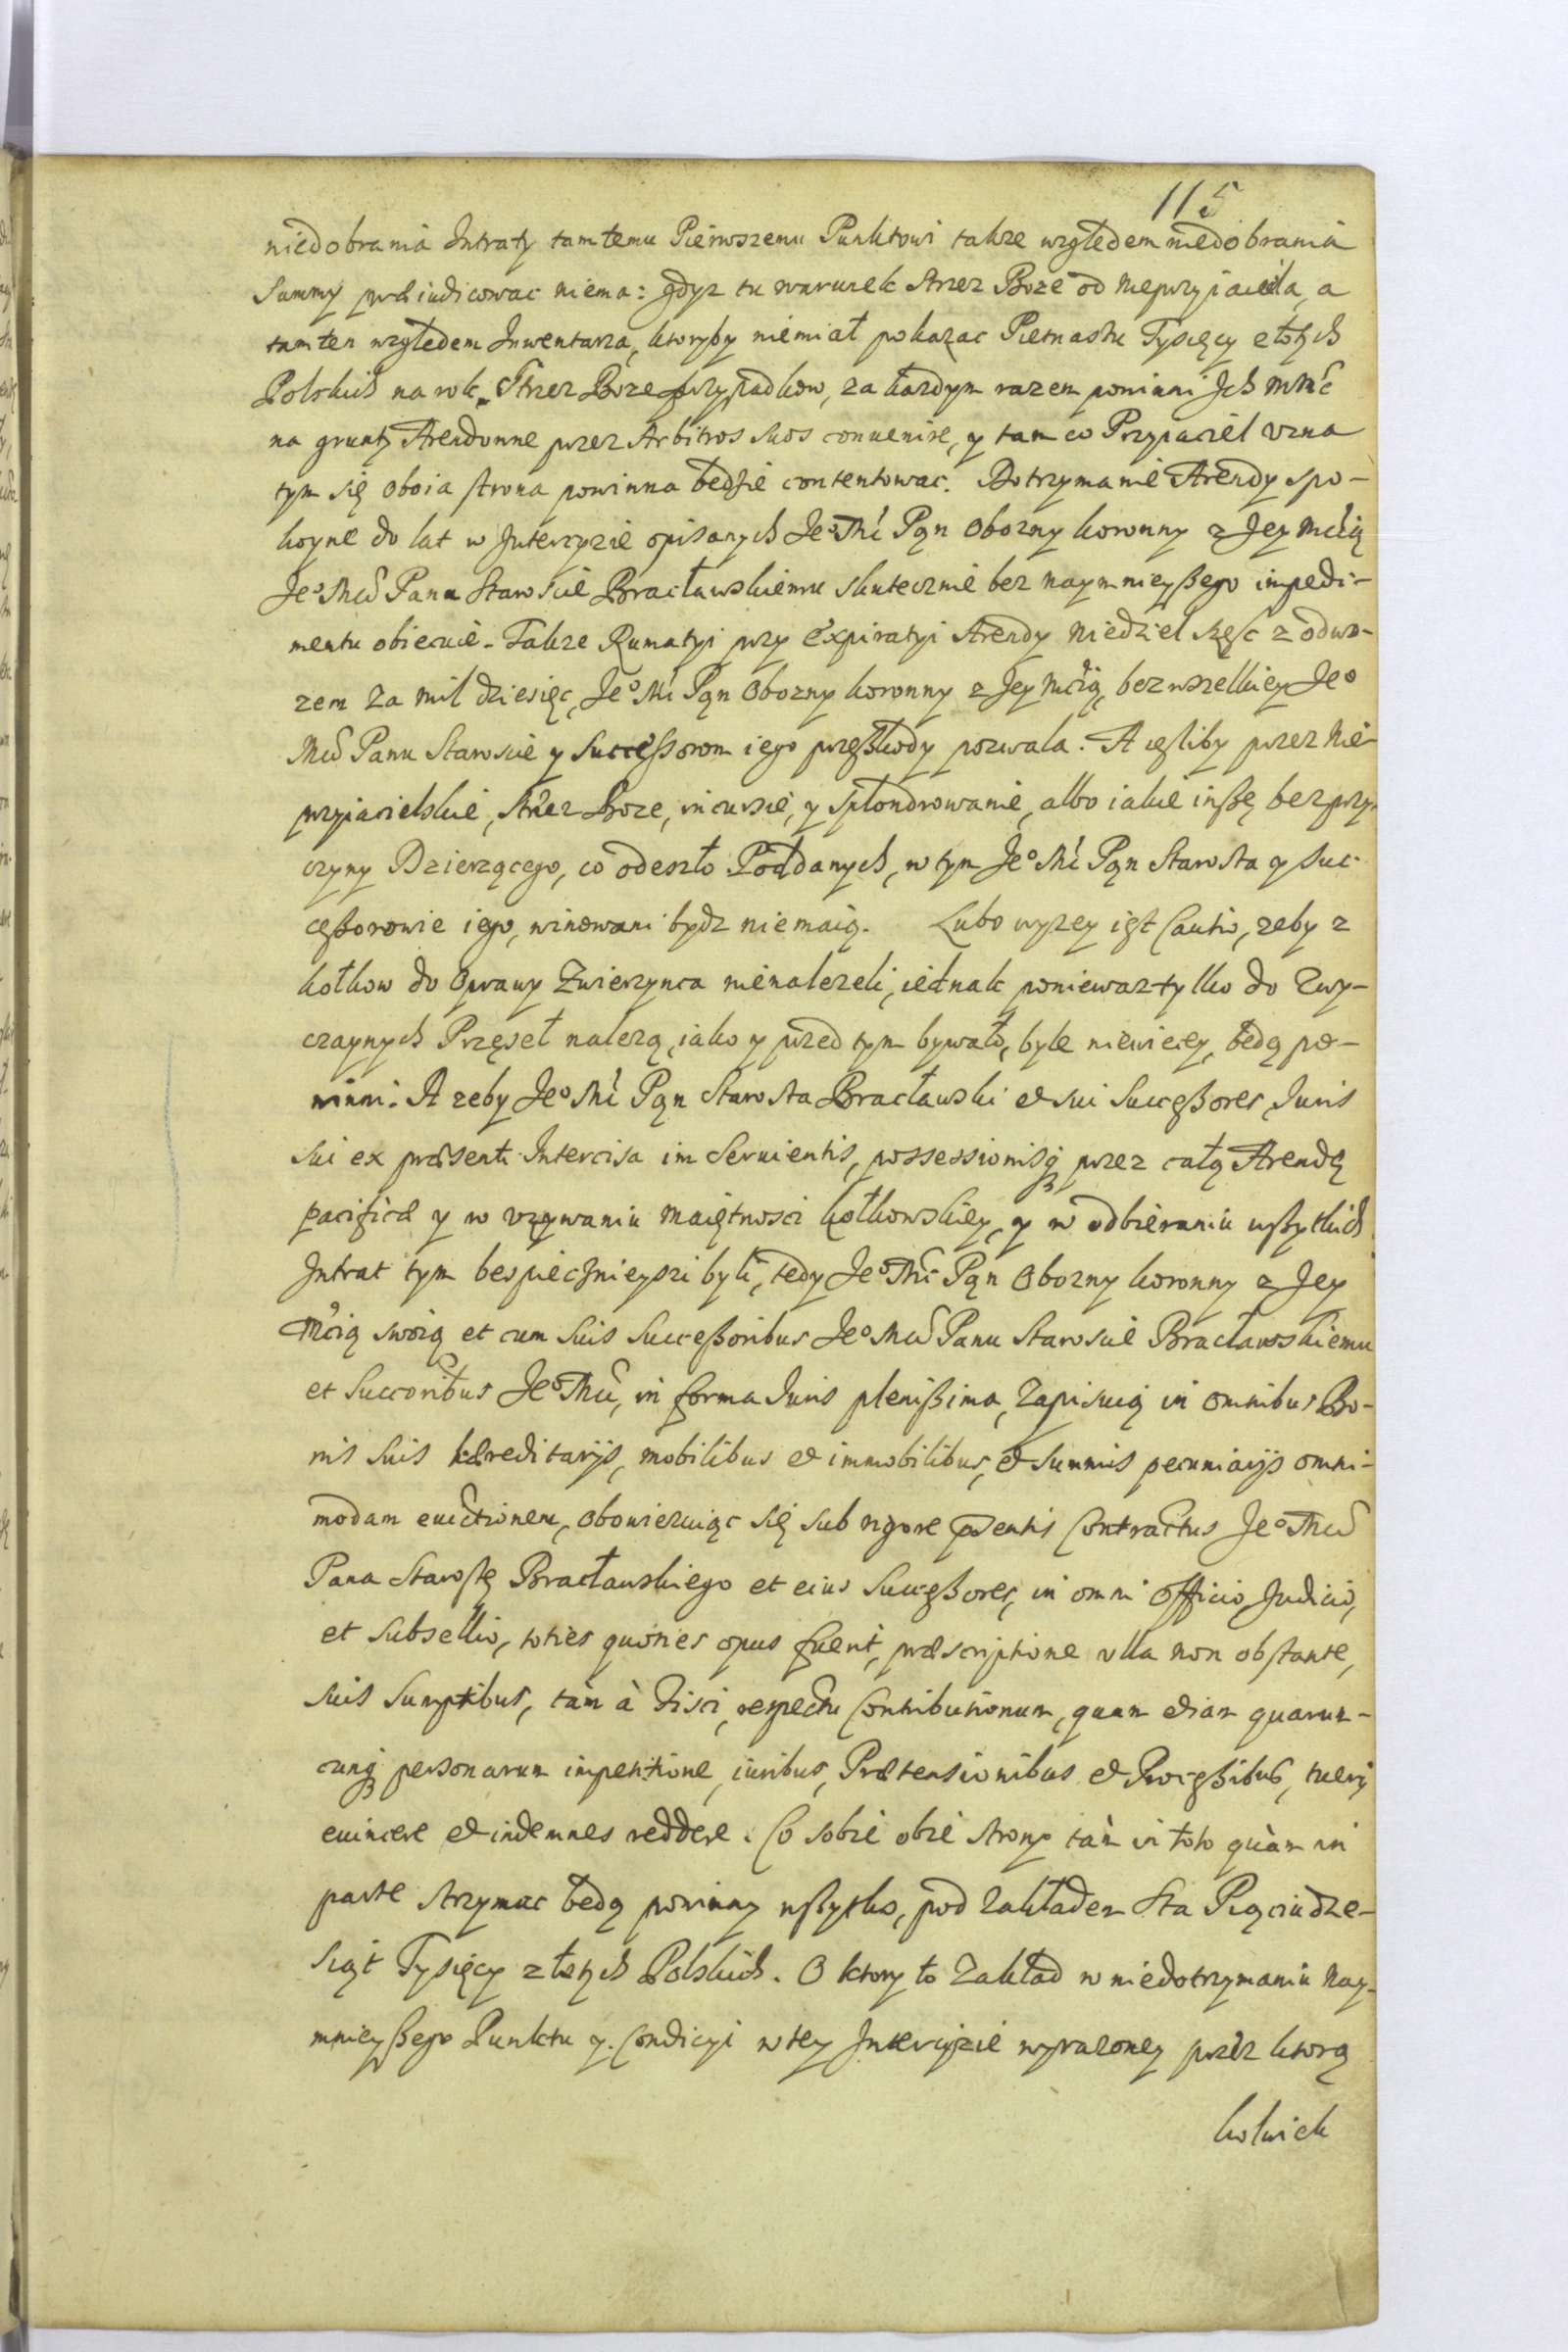 115
niedobrania Intraty tamtemu Pierwszemu Punktowi także względem niedobrania
Summy præiudicowac niema: gdyz tu warunek strzez Boze od nieprzyiaciela, a
tamten względem Inwentarza, ktoryby niemiał pokazac Pietnastu Tysięcy złotych
Polskich na rok. Strzez Boze przypadkow, za kazdym razem powinni Ich Mmć
na grunty Arendowne przez Arbitros suos convenire, y tam co Przyiaciel vzna
tym się oboia strona powinna będzie contentowac. Dotrzymanie Arendy spo-
koyne do lat w Intercyzie opisanych Jeo Mć Pąn Obozny koronny z Jey Mcią
Jeo Mci Panu Staroscie Bracławskiemu skutecznie bez naymnieyßego impedi-
mentu obiecuie. Takze Rumatyi przy Expiratyi Arendy Niedziel szesc z odwo-
zem za mil dziesięc, Jeo Mć Pąn Obozny koronny z Jey Mcią, bez wszelkiey Jeo
Mci Panu Staroscie y Successorom iego przeßkody pozwala. A ieſliby przez Nie-
przyiacielskie, strzez Boze, incursie, y splondrowanie, albo iakie inßę bez przy-
czyny Dzierzącego, co odeszło Poddanych, w tym Jeo Mć Pąn Starosta y Suc-
ceßorowie iego, winowani bydz niemaią. Lubo wyzey ieſt Cautio, zeby z
kołkow do Oprawy Zwierzynca nienalezeli, iednak poniewaz tylko do Zwy-
czaynych Przęseł nalezą, iako y przed tym bywało, byle niewięcey, będą po-
winni. A zeby Jeo Mć Pąn Starosta Bracławski et sui Succeßores, Iuris
sui ex præsenti Intercisa im servientis, possessionisq przez całą Arendę
pacificæ y w vzywaniu maiętnosci kołkowskiey, y w odbieraniu wßytkich
Intrat tym bespiecznieyszi byli, tedy Jeo Mć Pąn Obozny koronny z Jey
Mcią swoią et cum suis Succeßoribus Jeo Mci Panu Staroscie Bracławskiemu
et Succoribus Jeo Mci, in forma Iuris plenißima, Zapisuią in omnibus Bo-
nis suis hæreditarijs, mobilibus et immobilibus, et summis pecuniarijs omni-
modam evictionem, obowiezuiąc się sub rigore pñtis Contractus Jeo Mci
Pana Staroſtę Bracławskiego et eius Succeßores, in omni Officio, Iudicio,
et subsellio, toties quoties opus fuerit, præscriptione vlla non obſtante,
suis sumptibus, tàm à Fisci, respectu Contributionum, quam etiam quarum-
cunq personarum impetitione, iuribus, Prætensionibus et Proceßibus, tueri
evincere et indemnes reddere. Co sobie obie strony tàm in toto quàm in
parte strzymac będą powinny wßytko, pod Zakładem Sta Pięciudzie-
siąt Tysięcy złotych Polskich. O ktory to Zakład w niedotrzymaniu Nay-
mnieyßego Punktu y Condicyi w tey Intercyzie wyrazoney przez ktorą
kolwiek